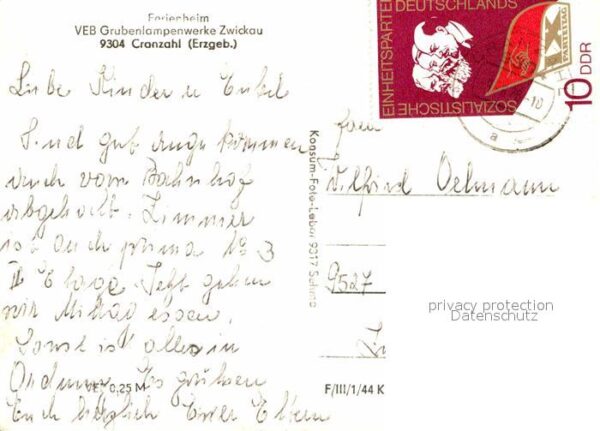 Ferienheim
VEB Grubenlampenwerke Zwickau
9304 Cranzahl (Erzgeb.)
Liebe Kinder u Enkel
Sind gut angekommen
auch vom Bahnhof
abgeholt. Zimmer
ist auch prima No 3
II Etage Jetzt gehen
wir Mittag essen.
Sonst ist alles in
Ordnung Es grüßen
Euch herzlich Eure Eltern
VE: 0,25 M
Konsum-Foto-Labor 9317 Sehma
F/III/1/44 K
SOZIALISTISCHE
EINHEITSPARTEI
DEUTSCHLANDS
IX
PARTEITAG
10 DDR
Wilfried Oelmann
9527
privacy protection
Datenschutz